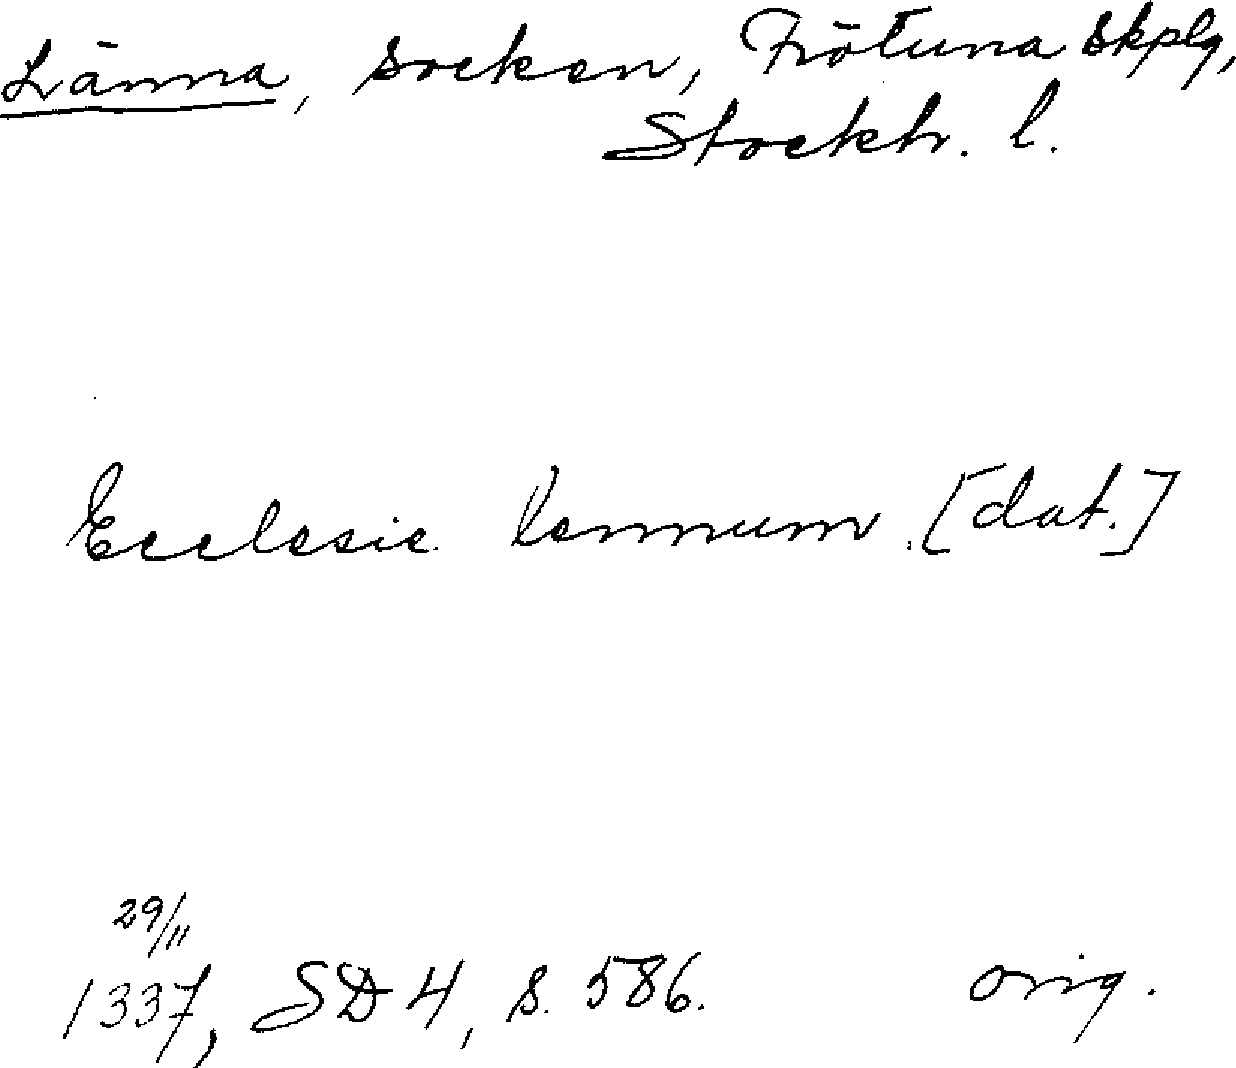 Länna, socken, Frötuna skplg,
Stockh. l.
Ecclesie lennum [dat.]
29/11
1337, SD 4, s. 586. orig.